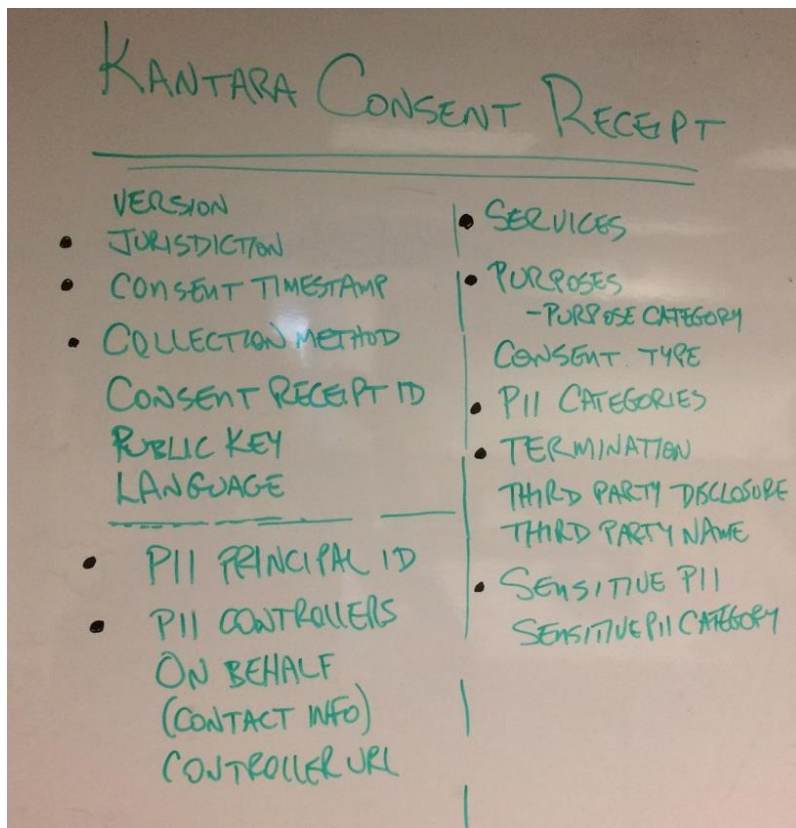 KANTARA CONSENT RECEIPT
VERSION
• JURISDICTION
• CONSENT TIMESTAMP
• COLLECTION METHOD
CONSENT RECEIPT ID
PUBLIC KEY
LANGUAGE
• PII PRINCIPAL ID
• PII CONTROLLERS
ON BEHALF
(CONTACT INFO)
CONTROLLER URL
• SERVICES
• PURPOSES
- PURPOSE CATEGORY
CONSENT TYPE
• PII CATEGORIES
• TERMINATION
THIRD PARTY DISCLOSURE
THIRD PARTY NAME
• SENSITIVE PII
SENSITIVE PII CATEGORY